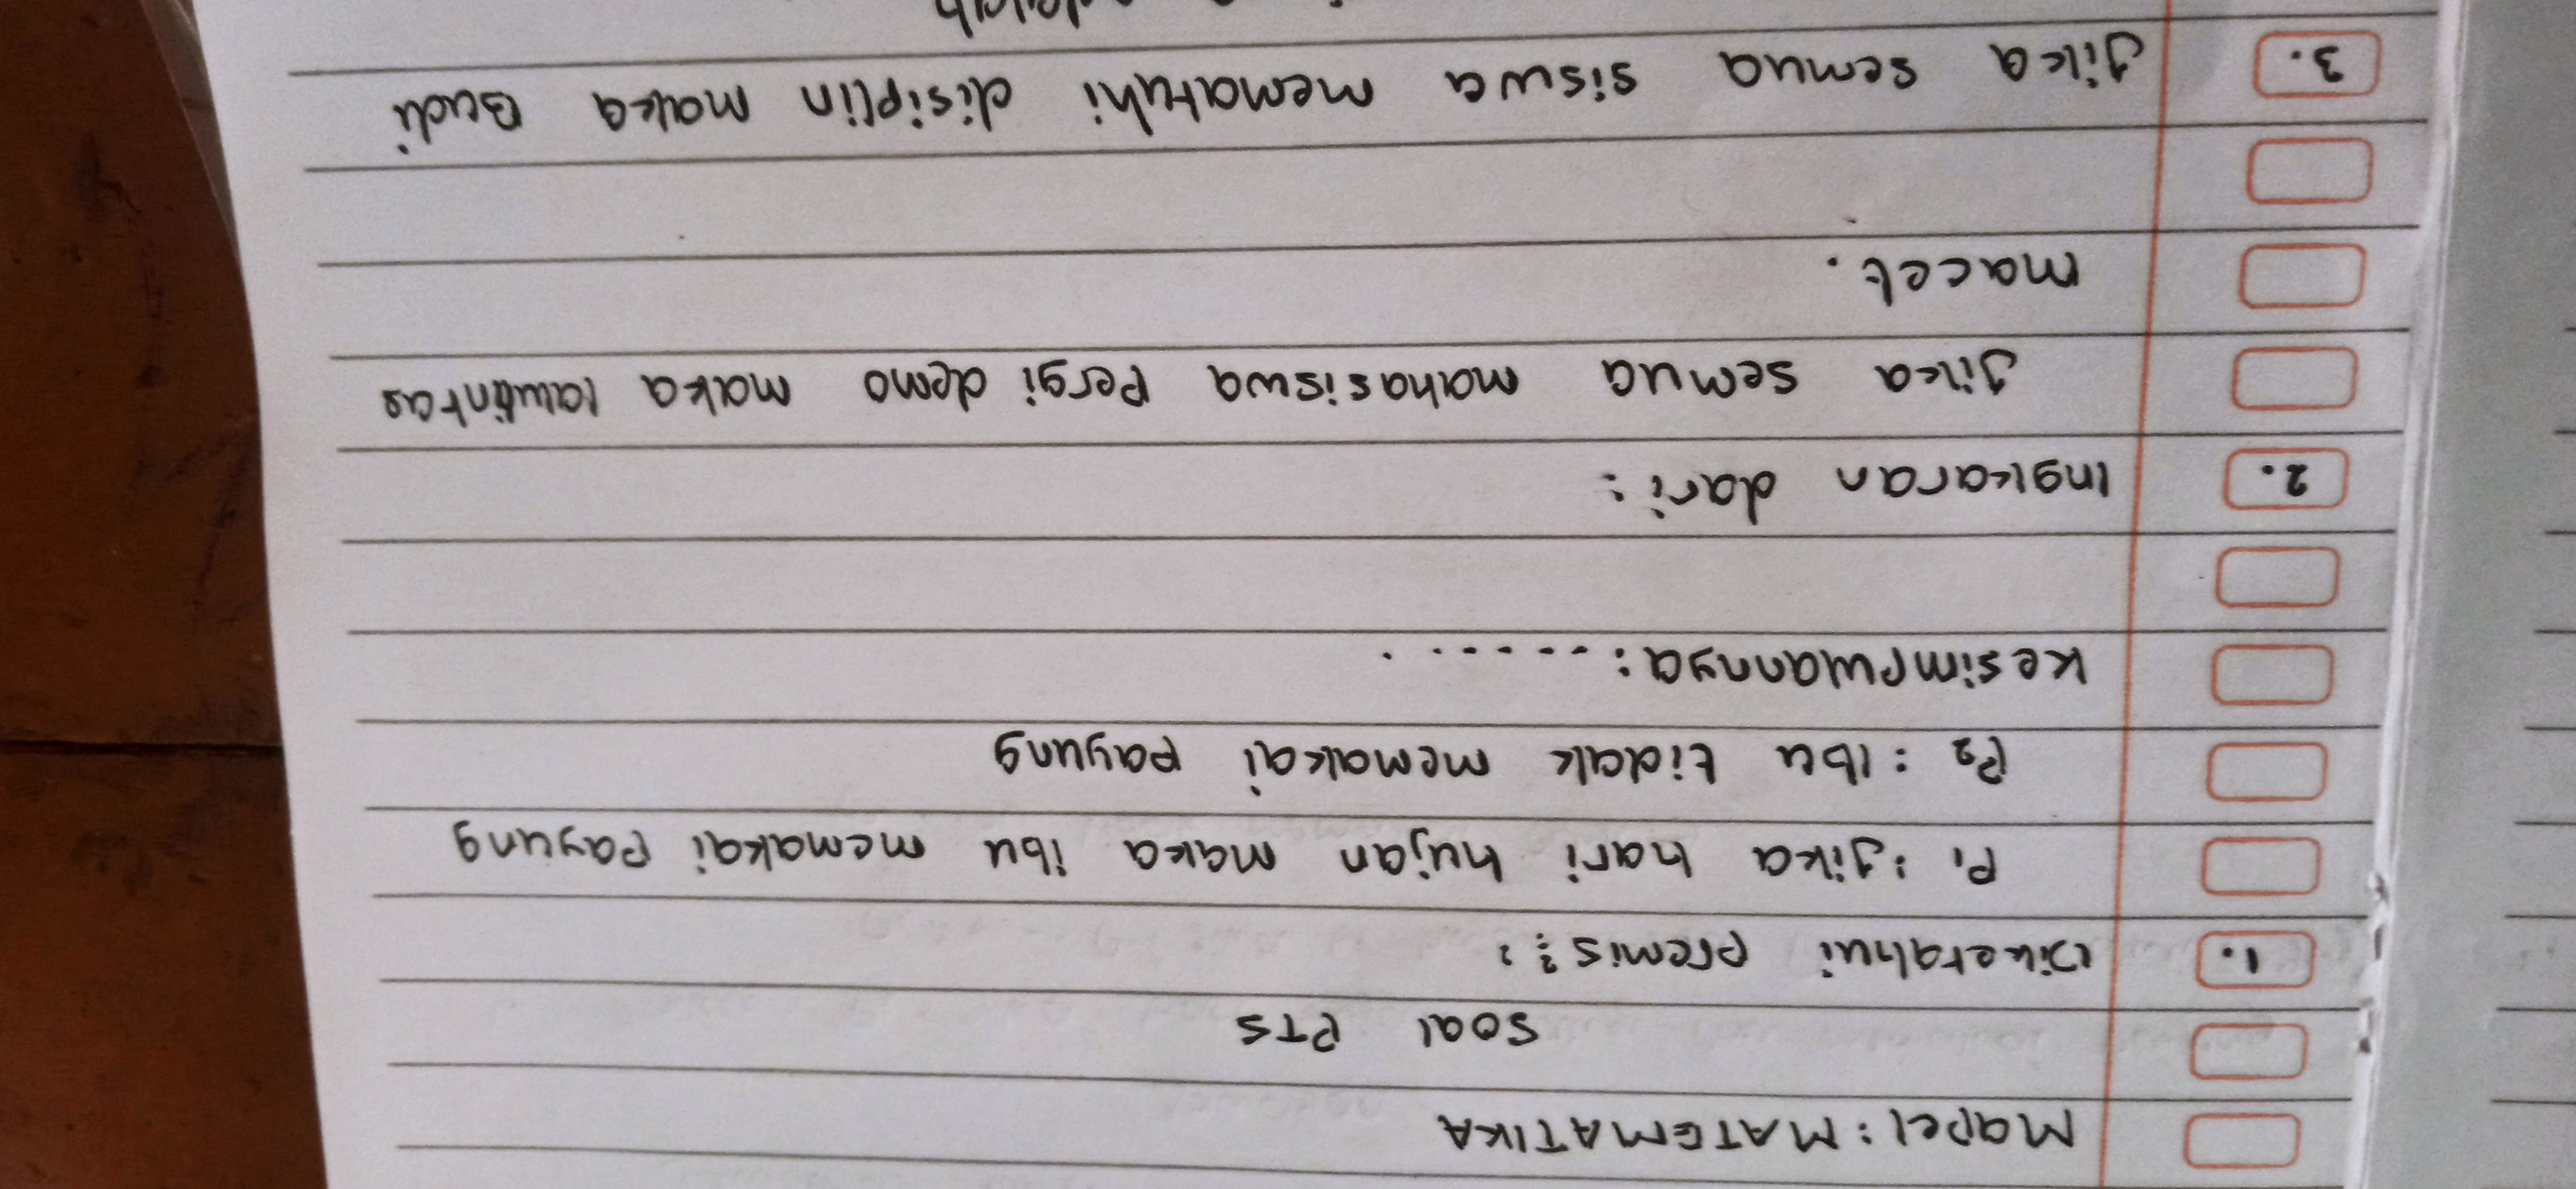 Mapel : MATEMATIKA
SOAL PTS
1. Diketahui premis :
P1 : Jika hari hujan maka ibu memakai payung
P2 : Ibu tidak memakai payung
Kesimpulannya : . . . . . . .
2. Ingkaran dari :
Jika semua mahasiswa pergi demo maka lalulintas
macet.
3. Jika semua siswa mematuhi disiplin maka Budi